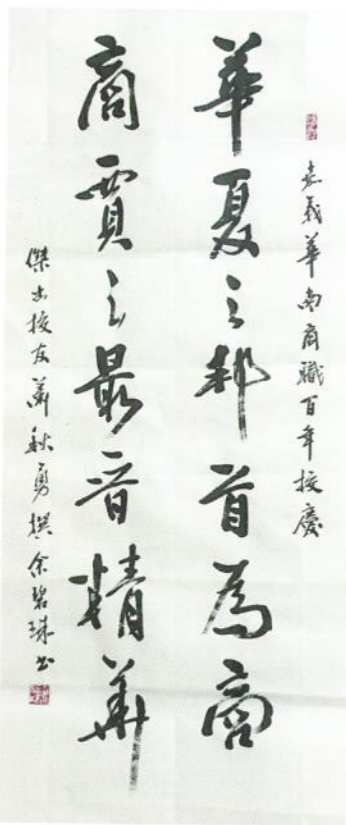 嘉義華南商職百年校慶
華夏之邦首為商
商賈之最晉精華
傑出校友蕭秋勇撰余碧珠書